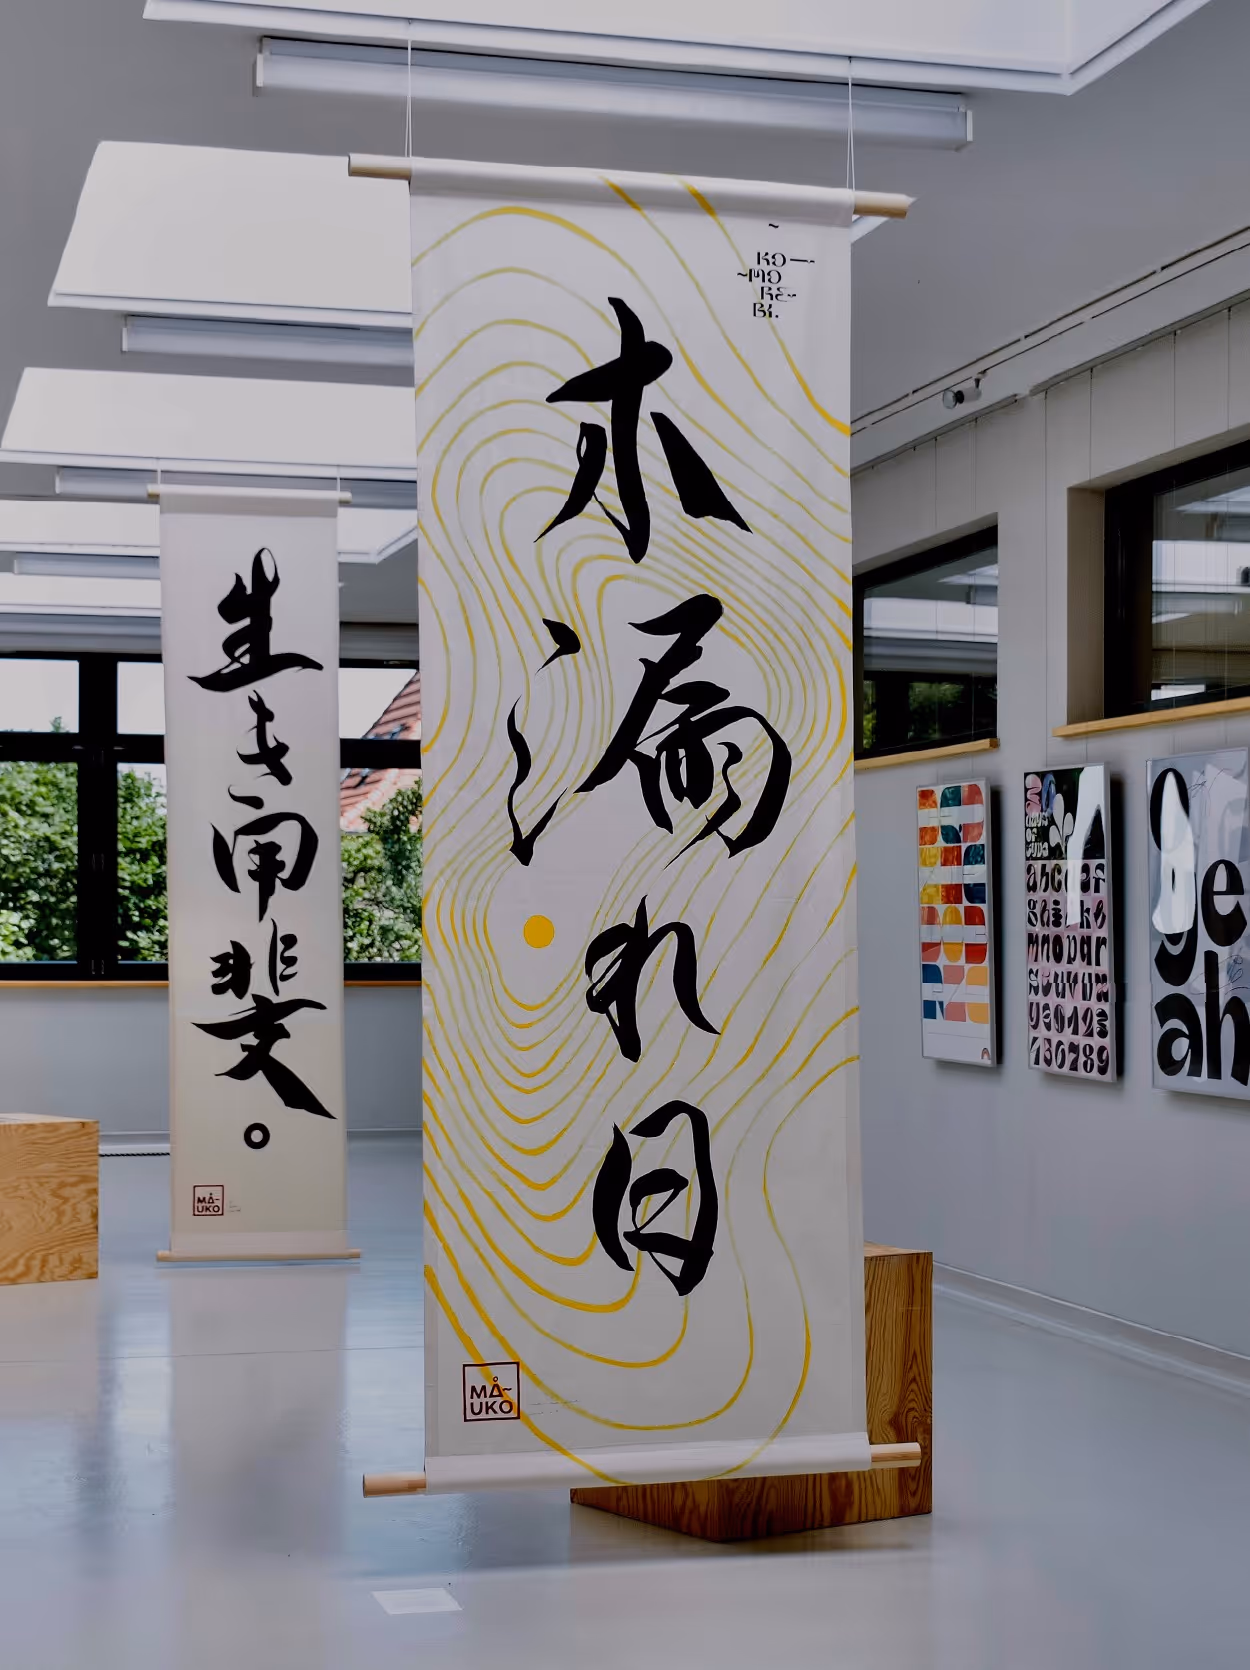 ~
KO—
~MO
RE~
BI.
木
漏
れ
日
MÅ~
UKO
生
き
甲
斐
。
MÅ~
UKO
abcdef
mnopqr
456789
ge
ah